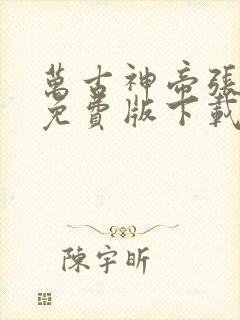 萬古神帝張
免費版下載
陳宇昕